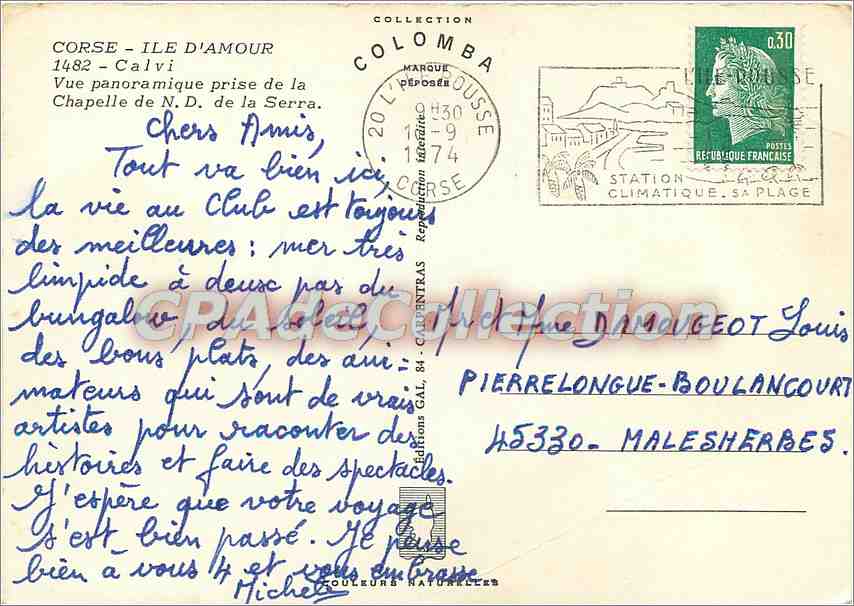 COLLECTION
COLOMBA
MARQUE
DÉPOSÉE
CORSE - ILE D'AMOUR
1482 - Calvi
Vue panoramique prise de la
Chapelle de N.D. de la Serra.
20 L'ILE-ROUSSE
9H30
-9
1974
CORSE
L'ILE-ROUSSE
STATION
CLIMATIQUE. SA PLAGE
0,30
POSTES
RÉPUBLIQUE FRANÇAISE
Chers Amis,
Tout va bien ici,
la vie au Club est toujours
des meilleures : mer très
limpide à deux pas du
bungalow, du soleil,
des bons plats, des ani=
mateurs qui sont de vrais
artistes pour raconter des
histoires et faire des spectacles.
J'espère que votre voyage
s'est bien passé. Je pense
bien à vous 4 et vous embrasse
Michèle
Editions GAL, 84 - CARPENTRAS Reproduction Interdite
Mr et Mme DAMOUGEOT Louis
PIERRELONGUE-BOULANCOURT
45330 - MALESHERBES.
COULEURS NATURELLES
CPAdeCollection